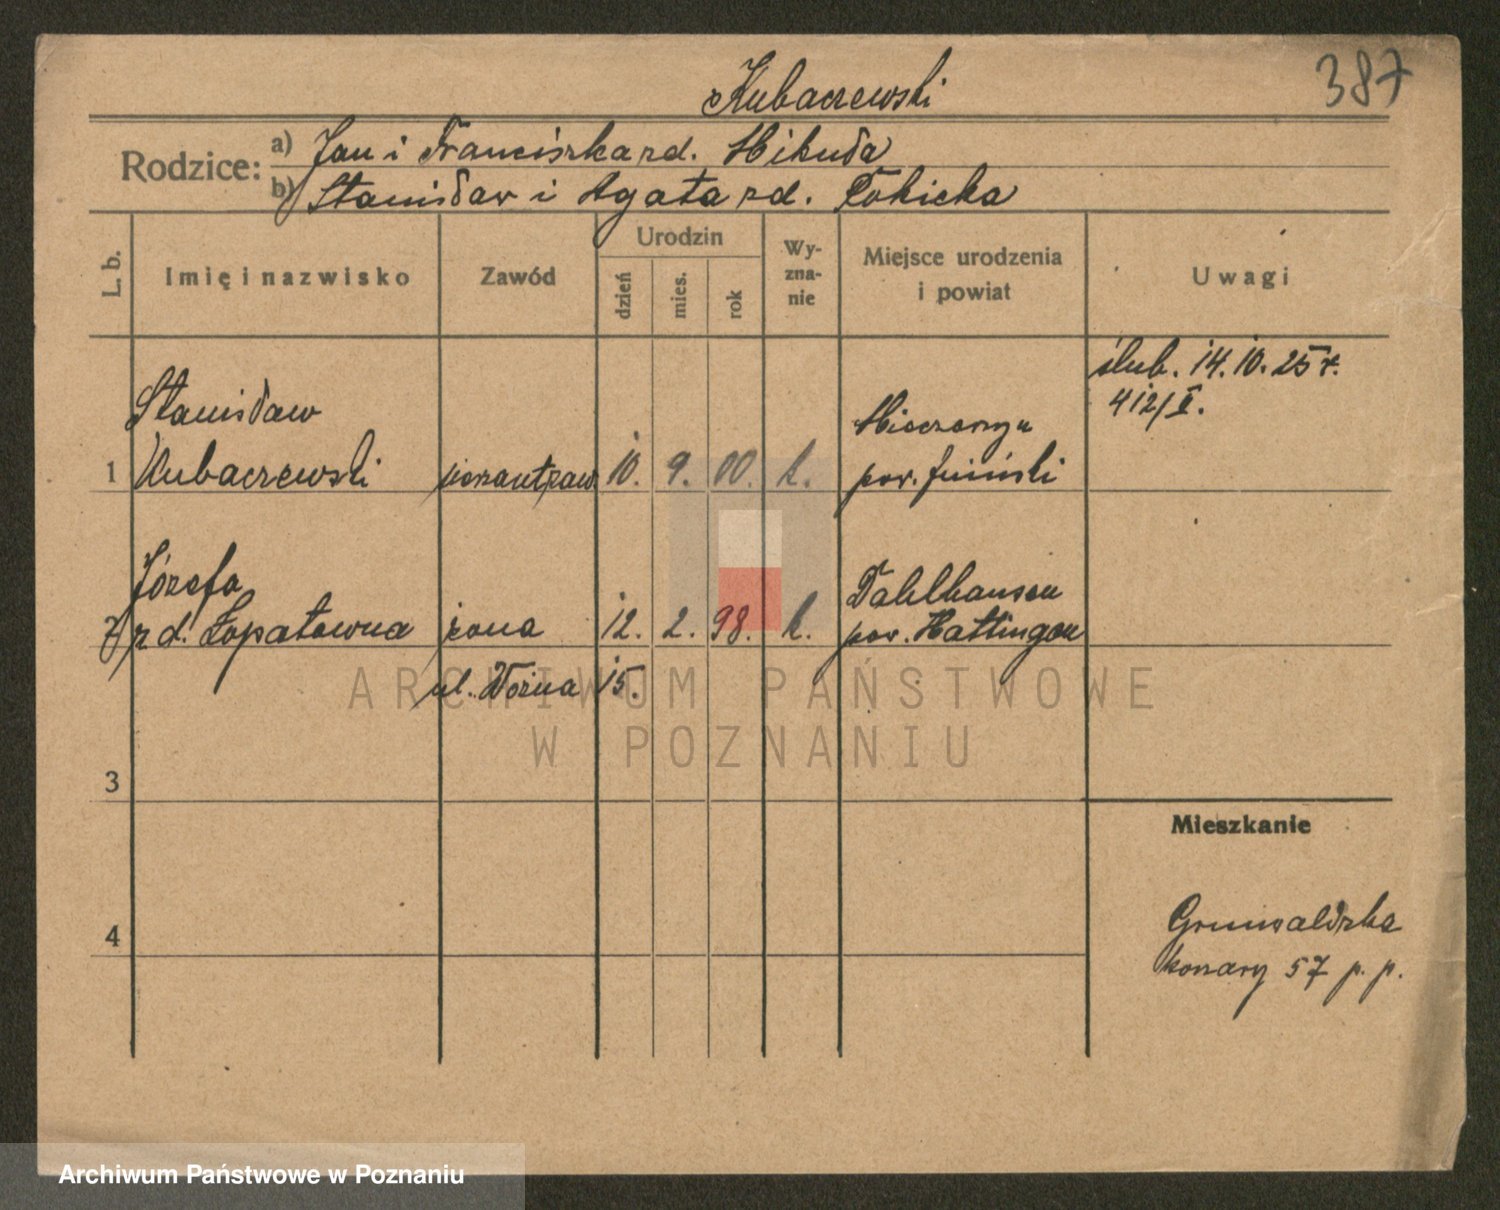 387
Kubaczewski
Rodzice: a) Jan i Franciszka zd. Mikuła
b) Stanisław i Agata zd. Tokicka
L. b.
Imię i nazwisko
Zawód
Urodzin
dzień
mies.
rok
Wy-
zna-
nie
Miejsce urodzenia
i powiat
Uwagi
ślub. 14.10.25 r.
412/I.
Stanisław
1 Kubaczewski 10. 9. 00. k.
pow.
Józefa
2 zd. Łopatówna żona 12. 2. 98. k.
Dahlhausen
pow. Hattingen
ul. Woźna 15.
3
4
Mieszkanie
Grunwaldzka
57 p. p.
ARCHIWUM PAŃSTWOWE
W POZNANIU
Archiwum Państwowe w Poznaniu